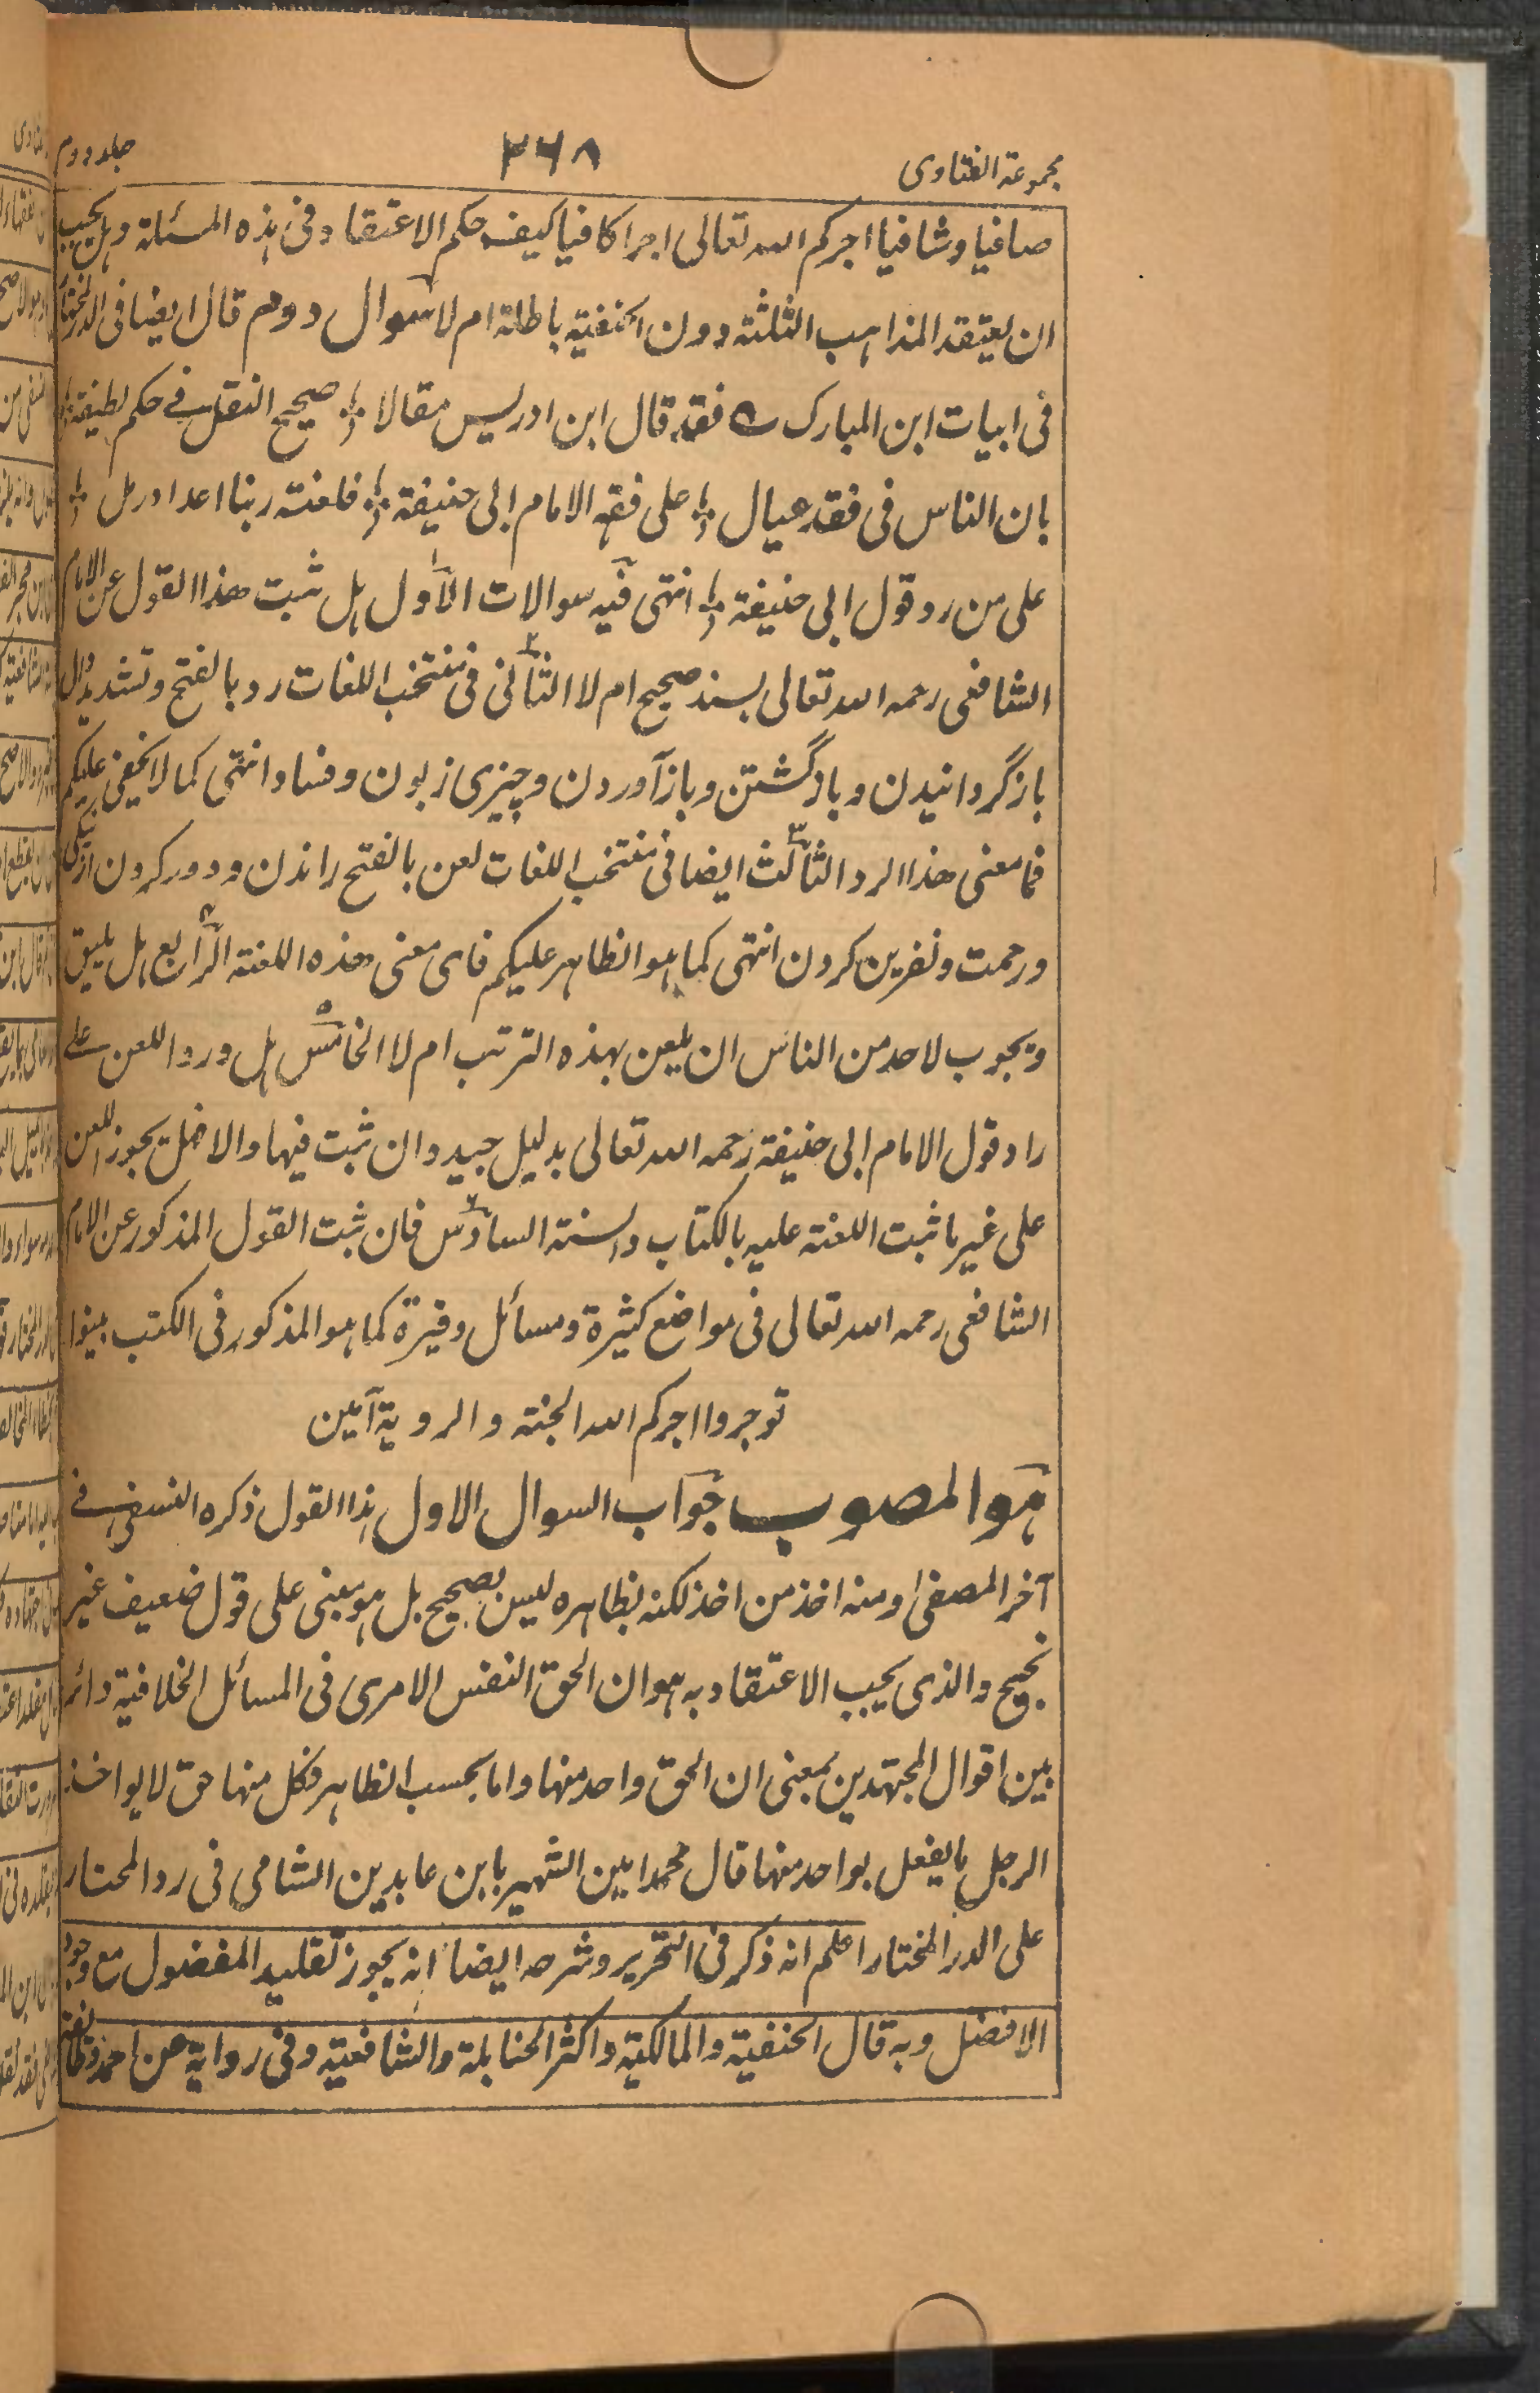 مجموعة الفتاوى ٢٦٨ جلد دوم
صافيا وشافيا اجركم الله تعالى اجرا كافيا كيف حكم الاعتقاد فى هذه المسئلة وهل يجب
ان يعتقد المذاهب الثلثة دون الحنفية باطلة ام لا سوال دوم قال ايضا فى الدر المختار
فى ابيات ابن المبارك ؎ فقد قال ابن ادريس مقالا ؛ صحيح النقل فى حكم لطيفة ؛
بان الناس فى فقه عيال ؛ على فقه الامام ابى حنيفة ؛ فلعنة ربنا اعداد رمل ؛
على من رد قول ابى حنيفة ؛ انتهى فيه سوالات الاول هل ثبت هذا القول عن الامام
الشافعى رحمه الله تعالى بسند صحيح ام لا الثانى فى منتخب اللغات رد بالفتح وتشديد دال
بازگردانيدن وبازگشتن وبازآوردن وچيزى زبون وفساد انتهى كما لا يخفى عليكم
فما معنى هذا الرد الثالث ايضا فى منتخب اللغات لعن بالفتح راندن ودور كردن از نيكى
ورحمت ونفرين كردن انتهى كما هو الظاهر عليكم فاى معنى هذه اللعنة الرابع هل يليق
ويجوب لاحد من الناس ان يلعن بهذه الترتب ام لا الخامس هل ورد اللعن على
راد قول الامام ابى حنيفة رحمه الله تعالى بدليل جيد وان ثبت فيها والا فهل يجوز اللعن
على غير ما ثبت اللعنة عليه بالكتاب والسنة السادس فان ثبت القول المذكور عن الامام
الشافعى رحمه الله تعالى فى مواضع كثيرة ومسائل وفيرة كما هو المذكور فى الكتب بينوا
توجروا اجركم الله الجنة والروية آمين
هو المصوب جواب السوال الاول هذا القول ذكره النسفى فى
آخر المصفى ومنه اخذ من اخذ لكنه بظاهره ليس بصحيح بل هو مبنى على قول ضعيف غير
نجيح والذى يجب الاعتقاد به هو ان الحق النفس الامرى فى المسائل الخلافية دائر
بين اقوال المجتهدين بمعنى ان الحق واحد منها واما بحسب الظاهر فكل منها حق لا يواخذ
الرجل بما يفعل بواحد منها قال محمد امين الشهير بابن عابدين الشامى فى رد المحتار
على الدر المختار اعلم انه ذكر فى التحرير وشرحه ايضا انه يجوز تقليد المفضول مع وجود
الافضل وبه قال الحنفية والمالكية واكثر الحنابلة والشافعية وفى رواية عن احمد وطائفة